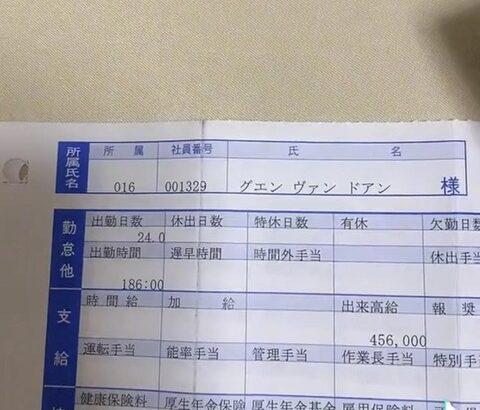 所属氏名
所 属 社員番号 氏 名
016 001329 グエン ヴァン ドアン 様
勤怠他
出勤日数 休出日数 特休日数 有休 欠勤日数
24.0
出勤時間 遅早時間 時間外手当 休出手
186:00
支給
時間給 加 給 出来高給 報奨
456,000
運転手当 能率手当 管理手当 作業長手当 特別手
健康保険料 厚生年金保険 厚生年金基金 雇用保険料